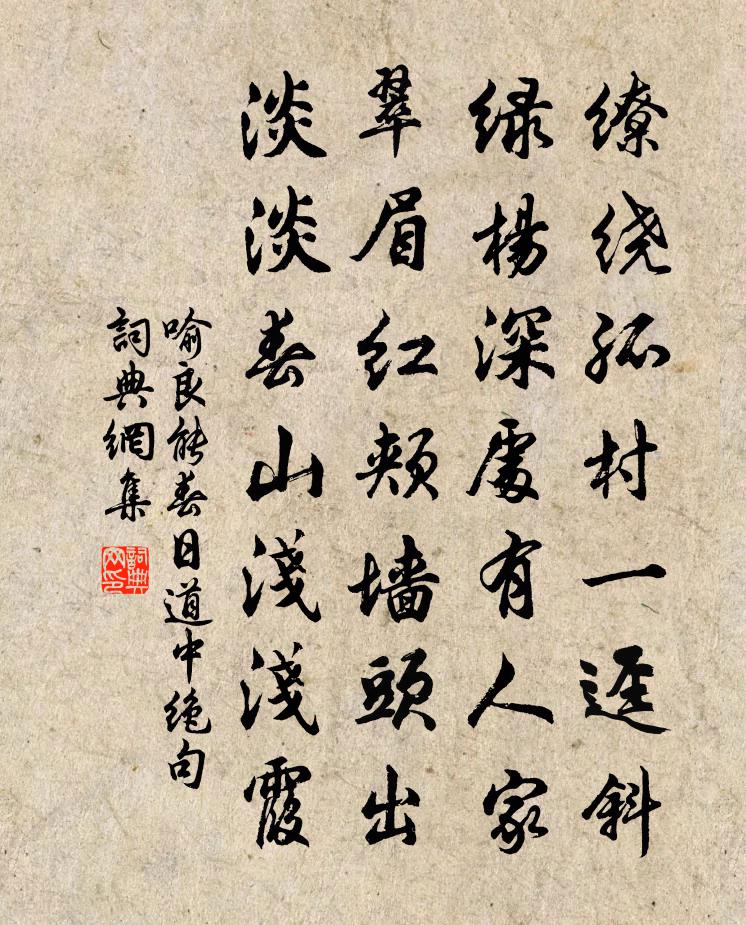 缭绕孤村一迳斜
绿杨深处有人家
翠眉红颊墙头出
淡淡春山淺淺霞
喻良能春日道中绝句
詞典網集
詞典网印